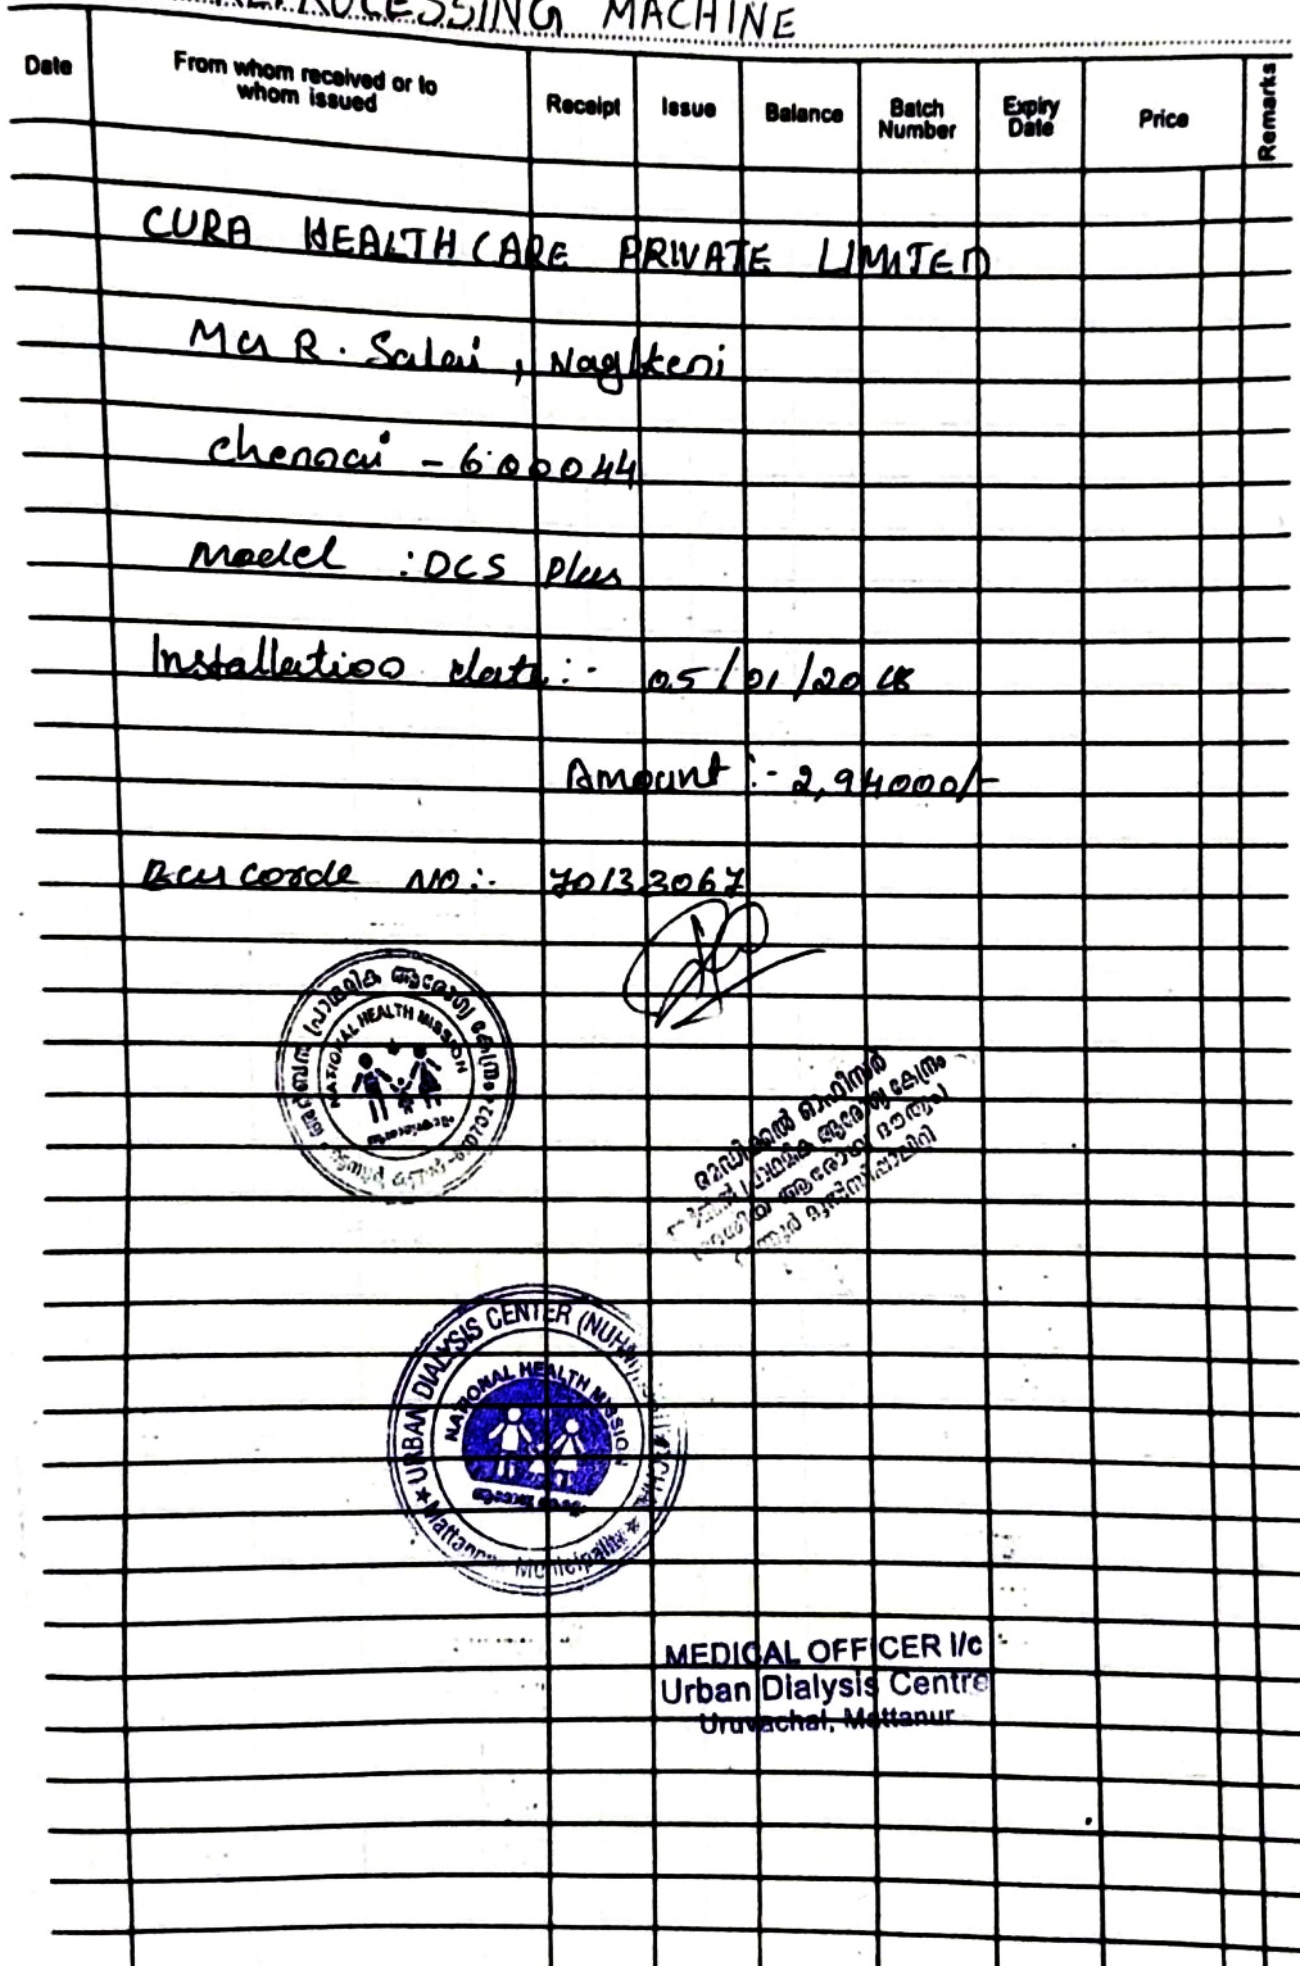 PROCESSING MACHINE
Date
From whom received or to whom issued
Receipt
Issue
Balance
Batch Number
Expiry Date
Price
Remarks
CURA HEALTHCARE PRIVATE LIMITED
M G R . Salai , Naglkeni
Chennai - 600044
Model : DCS Plus
Installation date :- 05/01/2018
Amount :- 2,94000/-
Bar corde NO :- 70133067
പ്രാഥമിക ആരോഗ്യ കേന്ദ്രം
NATIONAL HEALTH MISSION
മെഡിക്കൽ ഓഫീസർ
പ്രാഥമിക ആരോഗ്യ കേന്ദ്രം
മുനിസിപ്പാലിറ്റി
URBAN DIALYSIS CENTER (NUHM)
NATIONAL HEALTH MISSION
Municipality
MEDICAL OFFICER I/c
Urban Dialysis Centre
Uruvachal, Mattanur